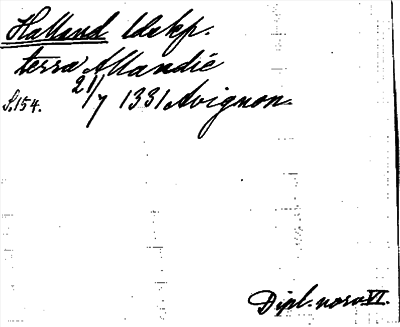 Halland Utskp.
terra Allandie
S. 154. 21/7 1331 Avignon.
Dipl. norv. VI.